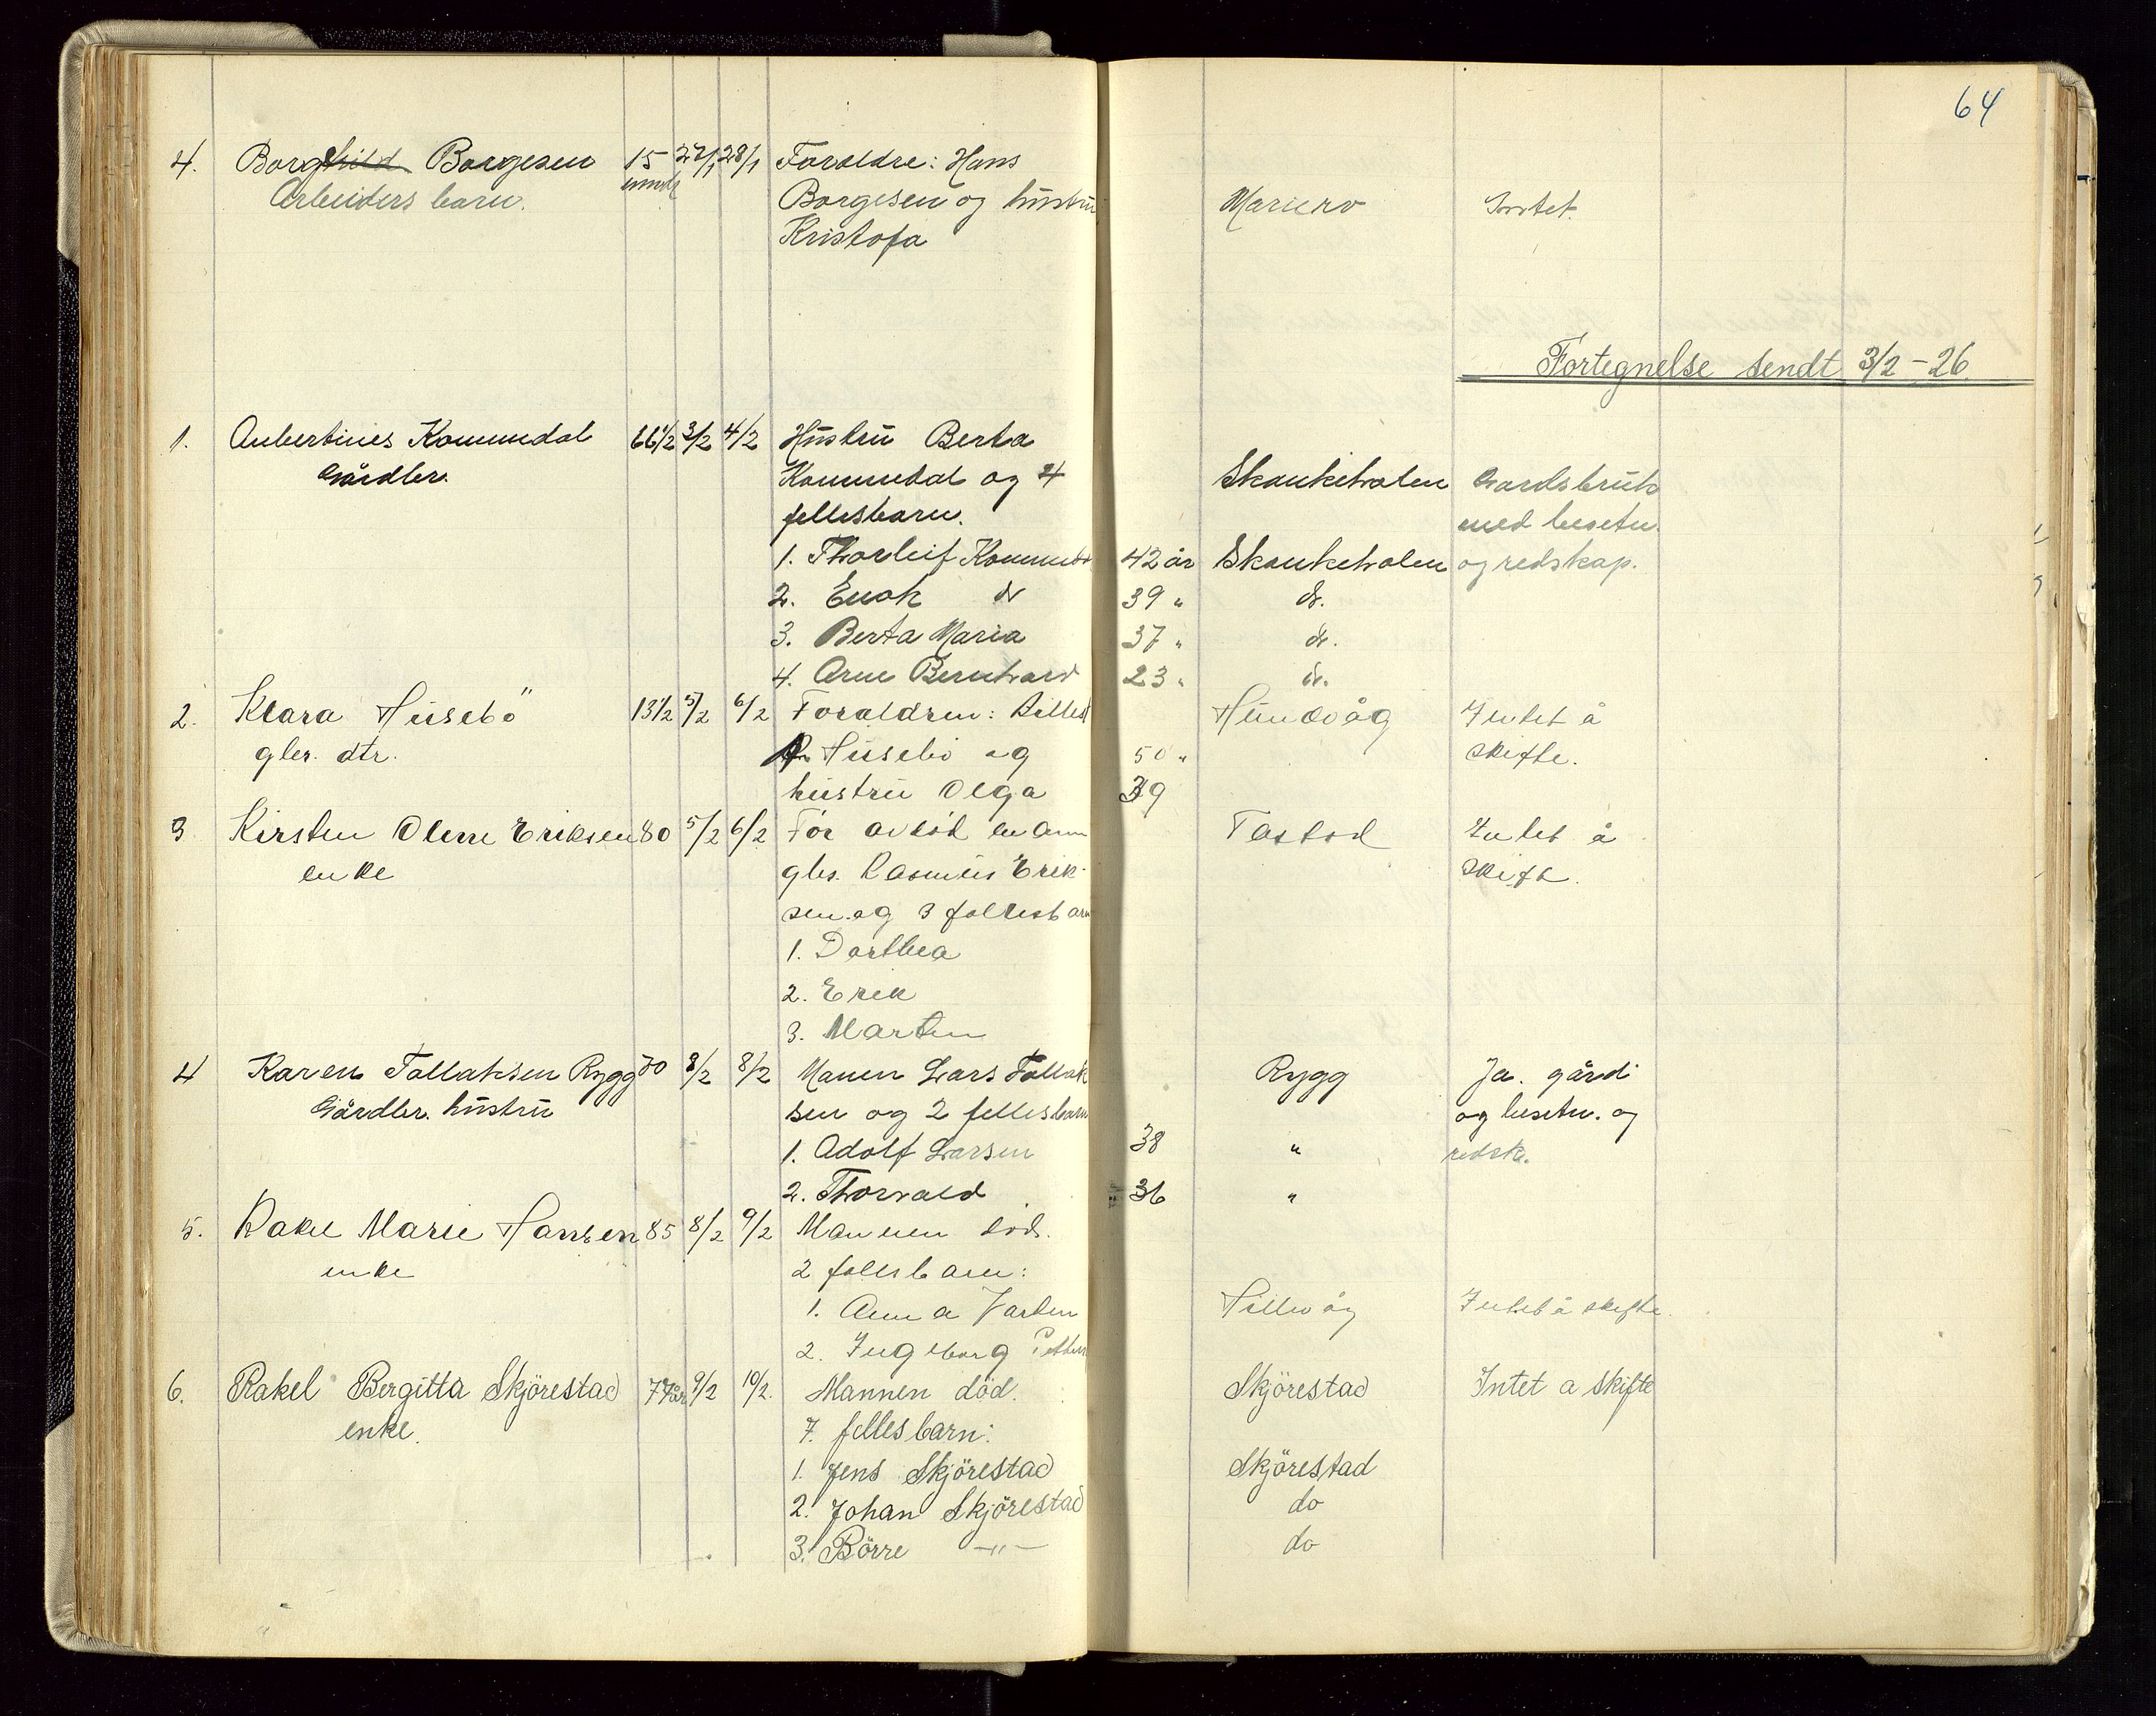 64
4. Borghild Borgesen 15 27/1 28/1 Foreldre: Hans
Arbeiders barn. mndr Borgesen og hustru Mariero Intet.
Kristofa
Fortegnelse sendt 3/2-26
1. Aubertines Kommedal 66 1/2 3/2 4/2 Hustru Berta
Gårdbr. Kommedal og 4 Skankeholen Gardsbruk
fellesbarn. med besetn.
1. Thorleif Kommeda 42 år Skankeholen og redskap.
2. Enok do 39 " do.
3. Berta Maria 37 " do.
4. Arne Bernhard 23 " do.
2. Klara Husebö 13 1/2 5/2 6/2 Foreldren: Hundvåg Intet å
gbr. dtr. Husebö og 50 " skifte.
hustru Olga 39
3 Kirsten Olene Eriksen 80 5/2 6/2 Før avdöd Tastad Intet å
enke gbr. Rasmus Erik- skifte.
sen og 3 fellesbarn
1. Dorthea
2. Erik
3. Marten
4 Karen Tollaksen Rygg 70 8/2 8/2 Manen Lars Tollak Rygg Ja. gård
Gårdbr. hustru sen og 2 fellesbarn og besetn. og
1. Adolf Larsen 38 " redsk.
2. Thorvald 36 "
5. Rakel Marie Hansen 85 8/2 9/2 Mannen död.
enke 2 fellesbarn:
1. Anna Hillevåg Intet å skifte.
2. Ingeborg
6. Rakel Bergitta Skjörestad 77 år 9/2 10/2. Mannen död. Skjörestad Intet a skifte
enke. 7. fellesbarn:
1. Jens Skjörestad Skjörestad
2. Johan Skjörestad do
3. Börre —"— do